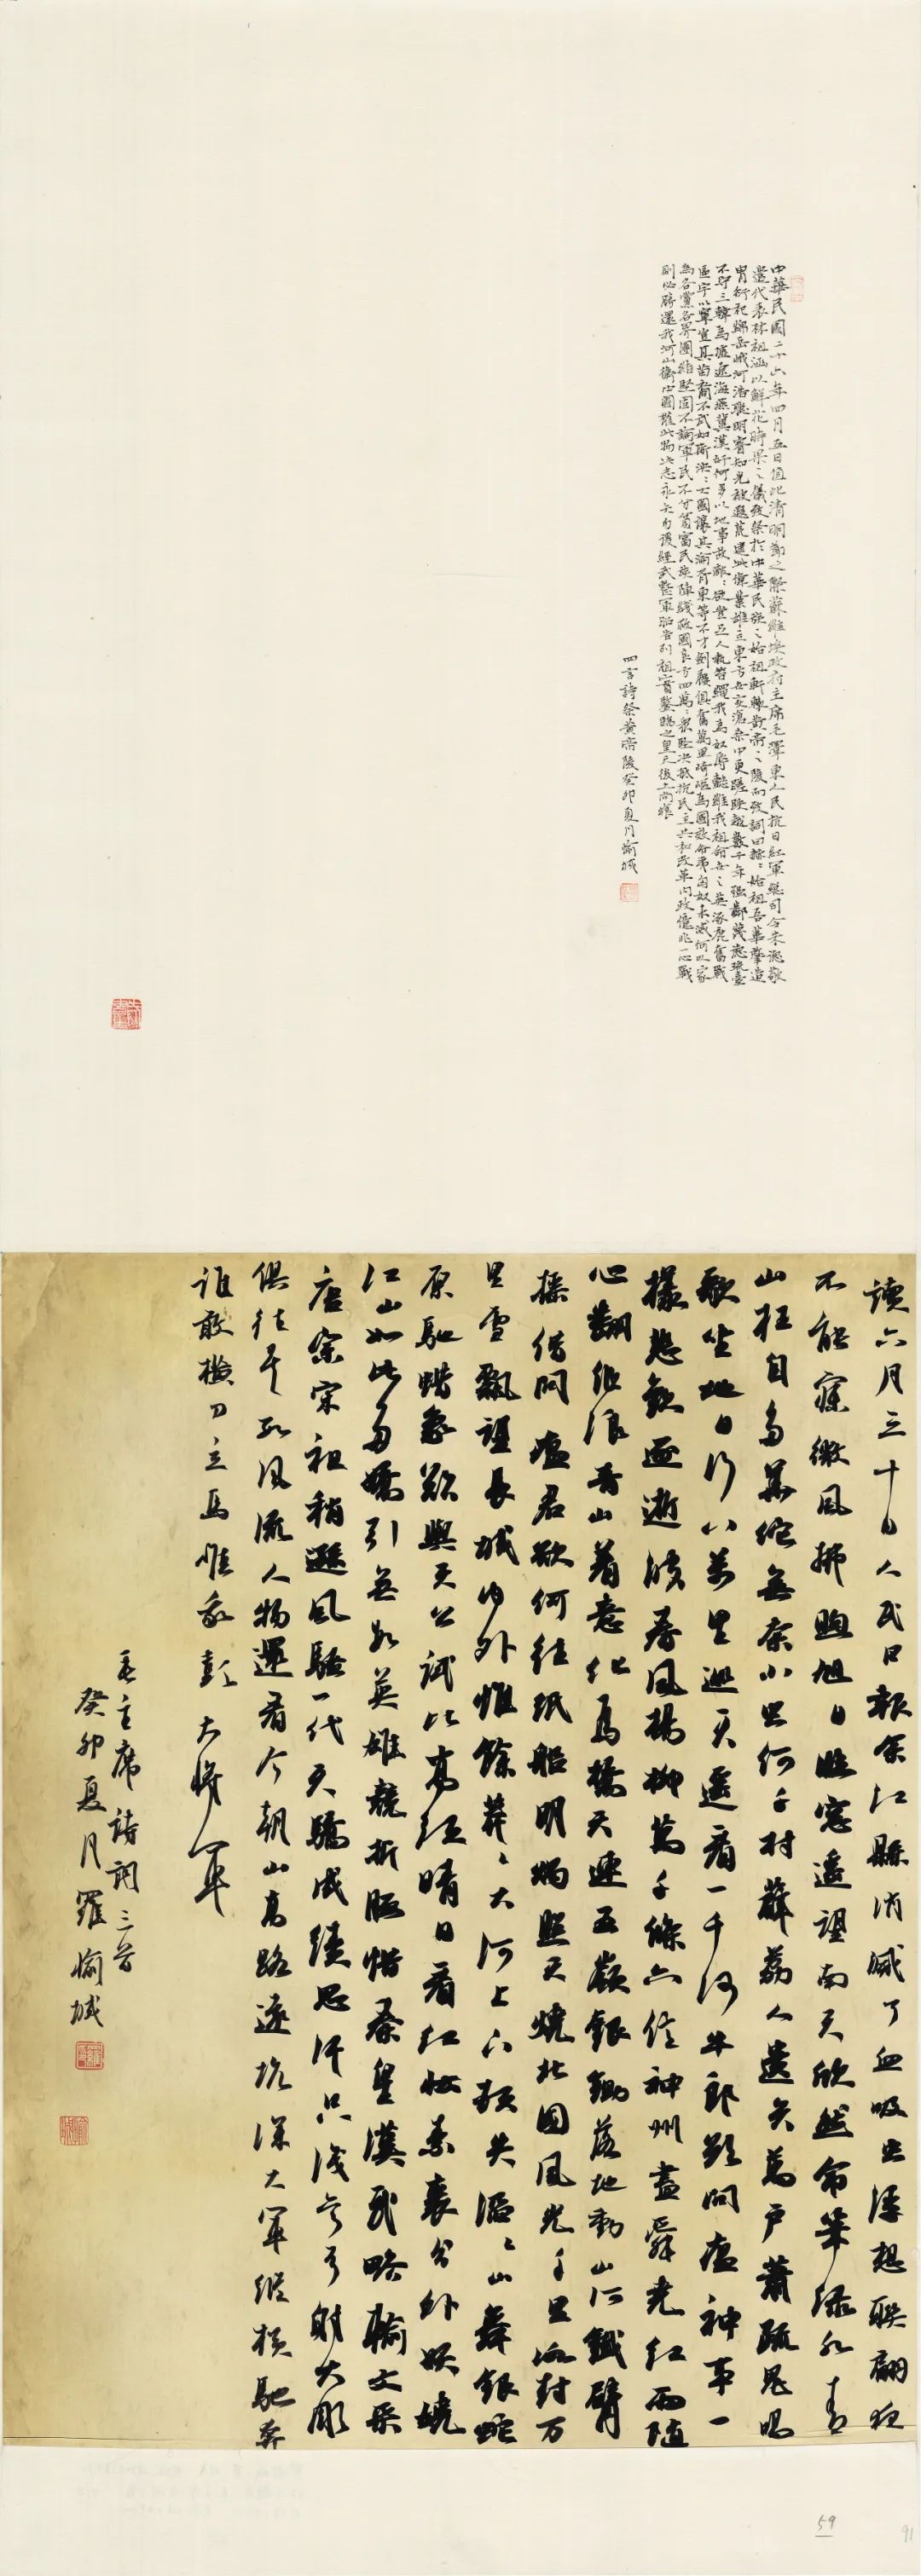 中華民國二十六年四月五日值此清明節之際蘇維埃政府主席毛澤東人民抗日紅軍總司令朱德敬
遣代表林祖涵以鮮花時果之儀致祭於中華民族之始祖軒轅黃帝之陵而致詞曰赫々始祖吾華肇造
胄衍祀綿岳峨河浩聰明睿知光被遐荒建此偉業雄立東方世變滄桑中更蹉跌越數千年強鄰蔑德琉臺
不守三韓為墟遼海燕冀漢奸何多以地事敵々欲豈足人執笞繩我為奴辱懿維我祖命世之英涿鹿奮戰
區宇以寧豈其苗裔不武如斯泱々大國讓其淪胥東等不才劍屨俱奮萬里崎嶇為國效命夷匈奴未滅何以家
為各黨各界團結堅固不論軍民不分貧富民族陣綫救國良方四萬々眾堅決抵抗民主共和改革內政億兆一心戰
則必勝還我河山衛中國權此物此志永矢勿諼經武整軍昭告列祖實鑒臨之皇天后土尚饗
四言詩祭黃帝陵癸卯夏月愉城
讀六月三十日人民日報余江縣消滅了血吸虫浮想聯翩夜
不能寐微風拂煦旭日臨窗遙望南天欣然命筆綠水青
山枉自多華佗無奈小虫何千村薜荔人遺矢萬戶蕭疏鬼唱
歌坐地日行八萬里巡天遙看一千河牛郎欲問瘟神事一
樣悲歡逐逝波春風楊柳萬千條六億神州盡舜堯紅雨隨
心翻作浪青山着意化為橋天連五嶺銀鋤落地動山河鐵臂
搖借問瘟君欲何往紙船明燭照天燒北國風光千里冰封万
里雪飄望長城內外惟餘莽々大河上下頓失滔々山舞銀蛇
原馳蠟象欲與天公試比高須晴日看紅妝素裹分外妖嬈
江山如此多嬌引無數英雄競折腰惜秦皇漢武略輸文采
唐宗宋祖稍遜風騷一代天驕成績思汗只識彎弓射大雕
俱往矣數風流人物還看今朝山高路遠坑深大軍縱橫馳奔
誰敢橫刀立馬惟我彭大將軍
毛主席詩詞三首
癸卯夏月羅愉城
59
91